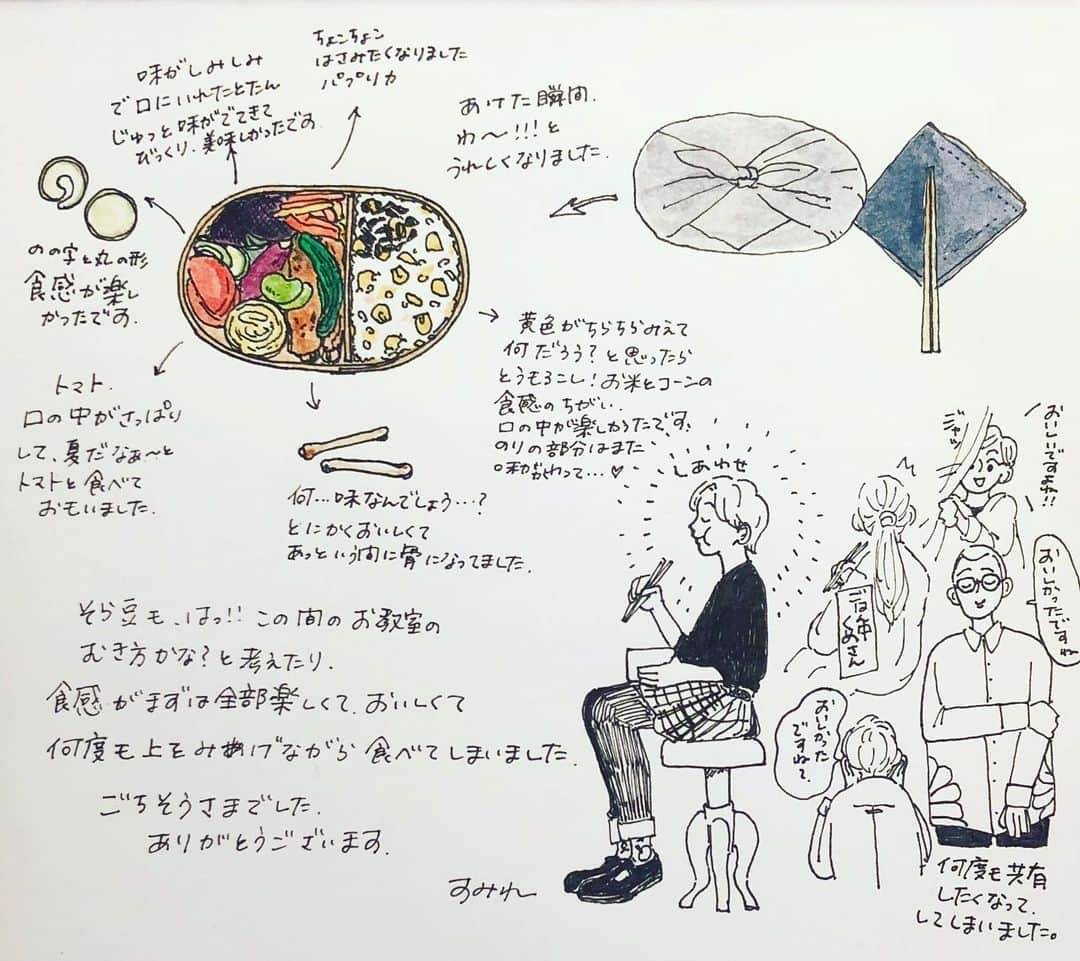 味がしみしみ
で口にいれたとたん
じゅっと味がでてきて
びっくり、美味しかったです。
ちょんちょん
はさみたくなりました
パプリカ
あけた瞬間、
わ〜!!!と
うれしくなりました。
のの字と丸の形
食感が楽し
かったです。
トマト、
口の中がさっぱり
して、夏だなぁ〜と
トマトと食べて
おもいました。
何…味なんでしょう…?
とにかくおいしくて
あっという間に骨になってました。
黄色がちらちらみえて
何だろう?と思ったら
とうもろこし!お米とコーンの
食感のちがい、
口の中が楽しかったです、
のりの部分はまた
味がかわって…♡
しあわせ
ジャッ
おいしいですよね!!
おいしかったですね
ごはん中
くめさん
おいしかった
ですねて、
何度も共有
したくなって、
してしまいました。
そら豆も、はっ!!この間のお教室の
むき方かな?と考えたり、
食感がまずは全部楽しくて、おいしくて
何度も上をみあげながら食べてしまいました。
ごちそうさまでした。
ありがとうございます。
すみれ